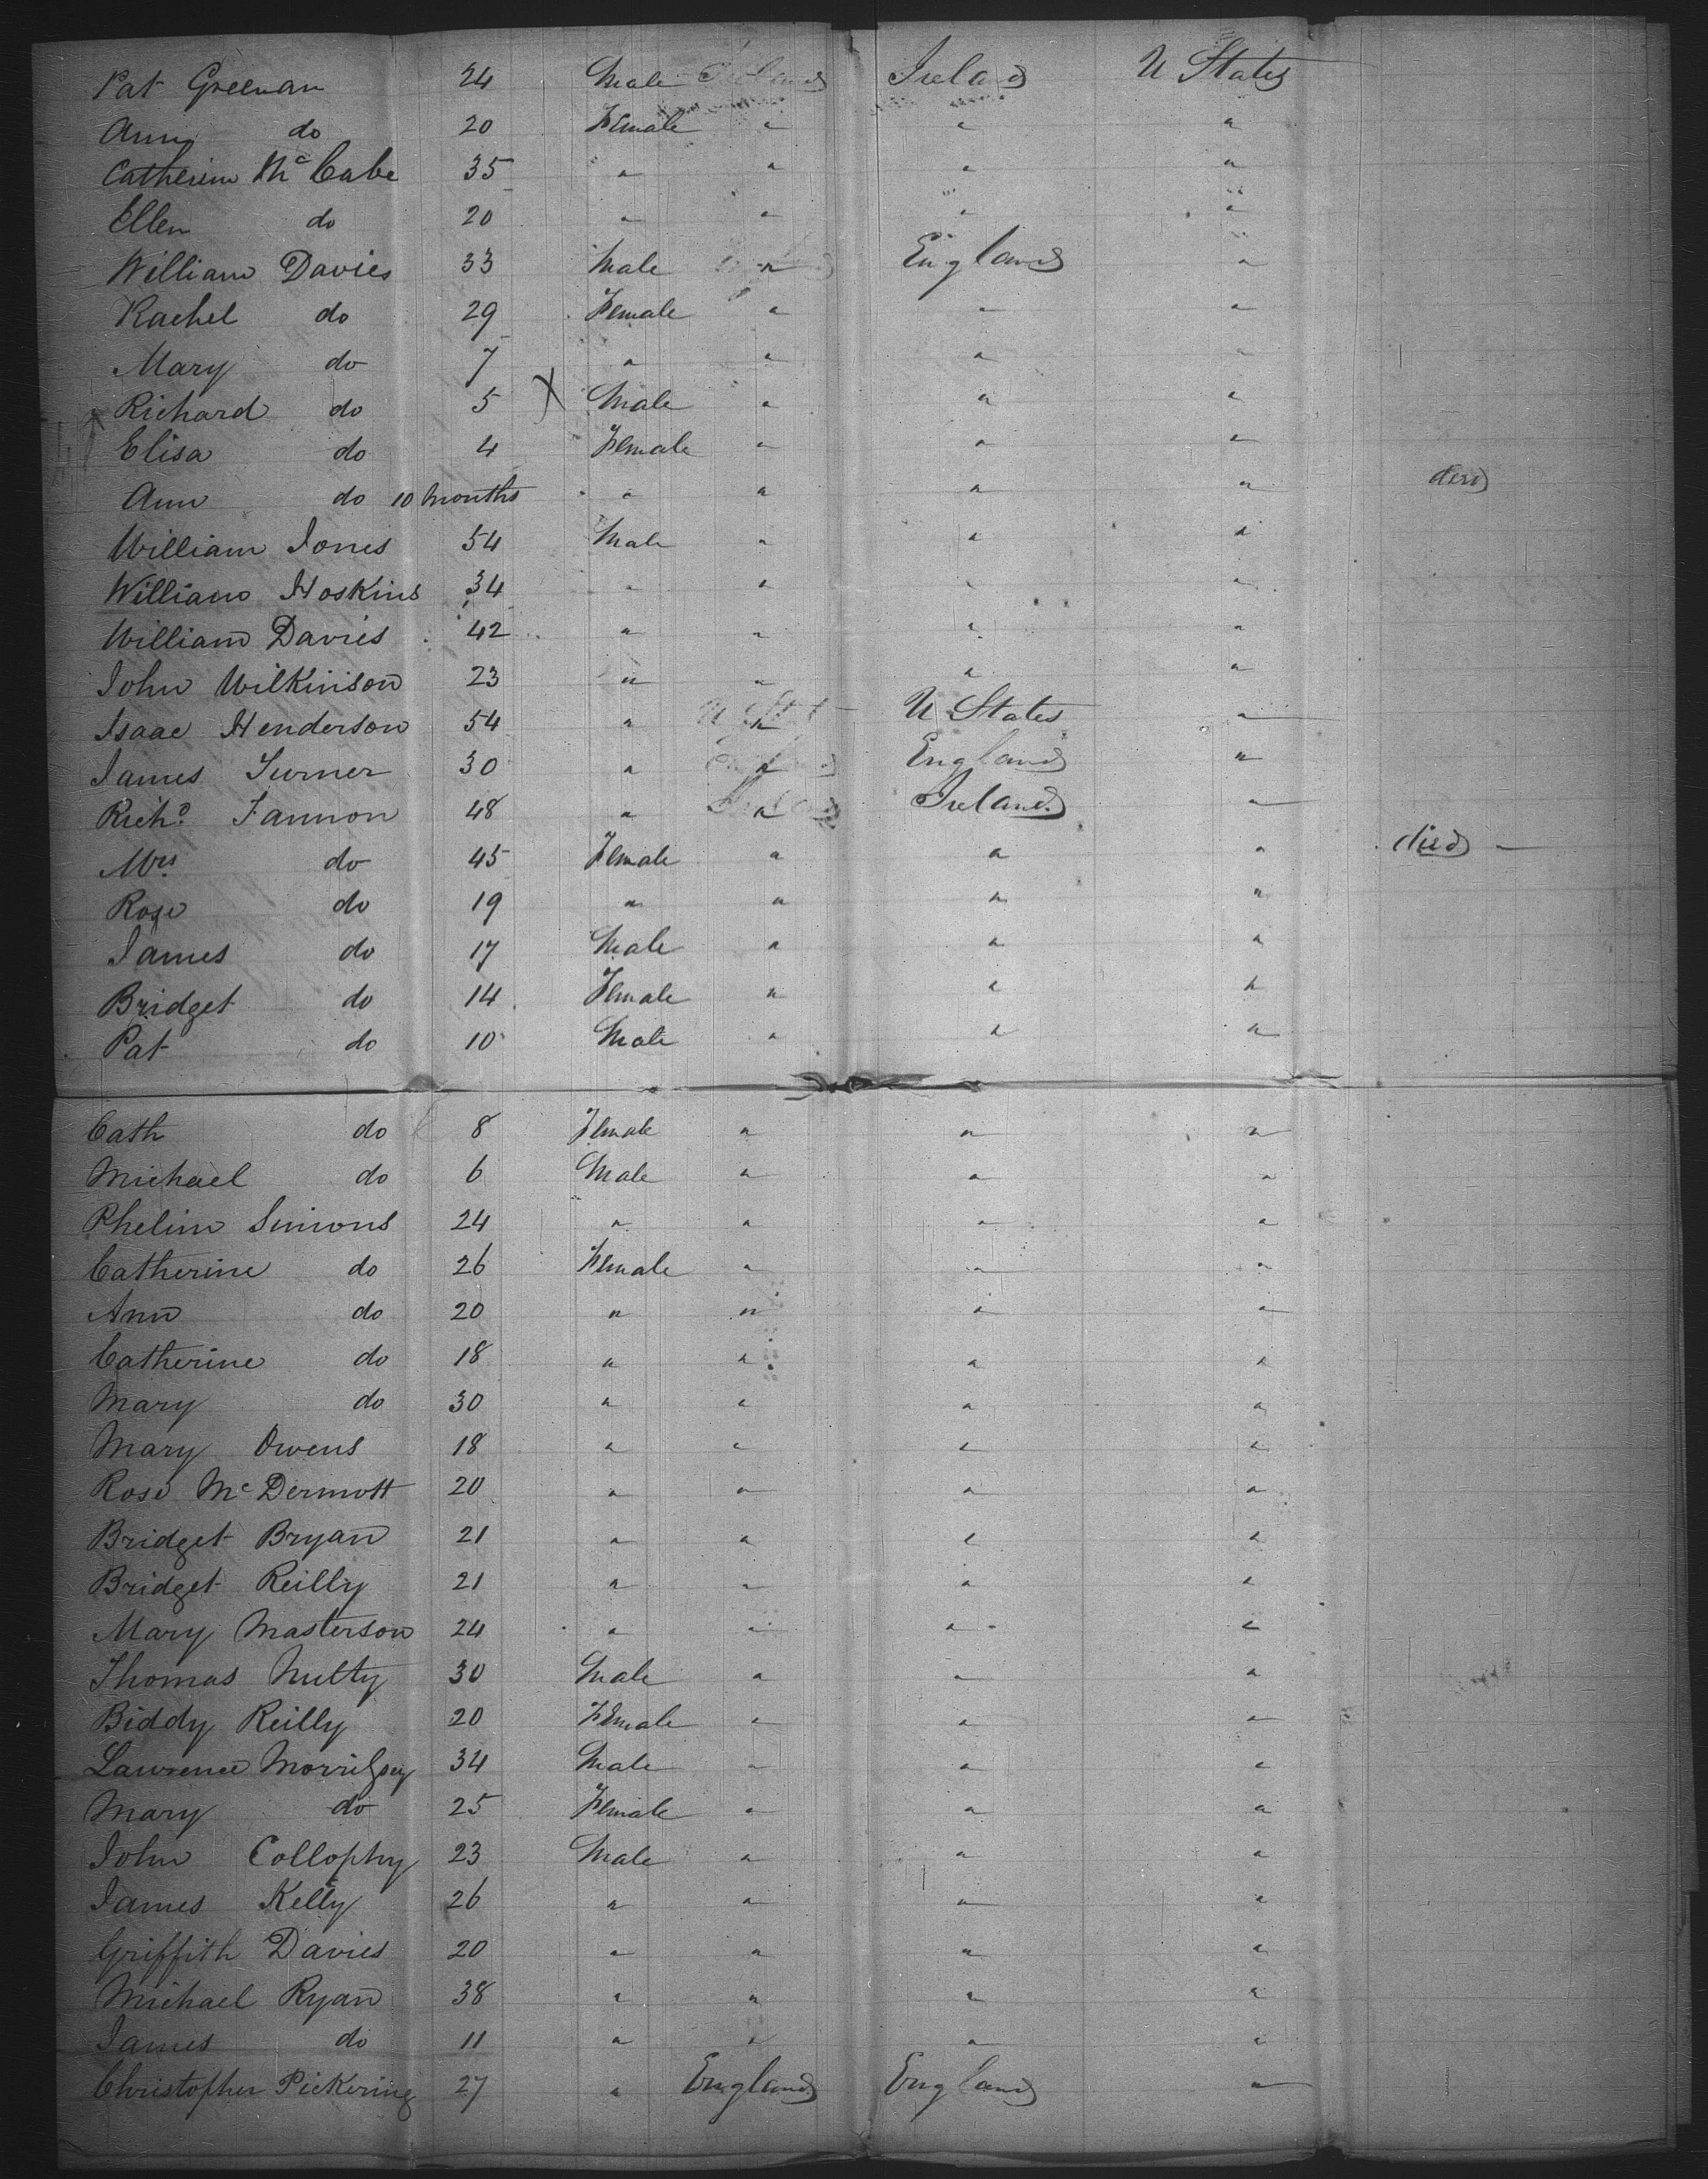 Pat Greenan 24 Male Ireland Ireland U States
Ann do 20 Female " " "
Catherine McCabe 35 " " " "
Ellen do 20 " " " "
William Davies 33 Male " England "
Rachel do 29 Female " " "
Mary do 7 " " " "
Richard do 5 X Male " " "
Elisa do 4 Female " " "
Ann do 10 Months " " " " died
William Jones 54 Male " " "
William Hoskins 34 " " " "
William Davies 42 " " " "
John Wilkinson 23 " " " "
Isaac Henderson 54 " U States "
James Turner 30 " England "
Richd. Fannon 48 " Ireland "
Mrs. do 45 Female " " " died
Rose do 19 " " " "
James do 17 Male " " "
Bridget do 14 Female " " "
Pat do 10 Male " " "
Cath do 8 Female " " "
Michael do 6 Male " " "
Phelim Simons 24 " " " "
Catherine do 26 Female " " "
Ann do 20 " " " "
Catherine do 18 " " " "
Mary do 30 " " " "
Mary Owens 18 " " " "
Rose McDermott 20 " " " "
Bridget Bryan 21 " " " "
Bridget Reilly 21 " " " "
Mary Masterson 24 " " " "
Thomas Nulty 30 Male " " "
Biddy Reilly 20 Female " " "
Lawrence 34 Male " " "
Mary do 25 Female " " "
John Collophy 23 Male " " "
James Kelly 26 " " " "
Griffith Davies 20 " " " "
Michael Ryan 38 " " " "
James do 11 " " " "
Christopher Pickering 27 " England England "